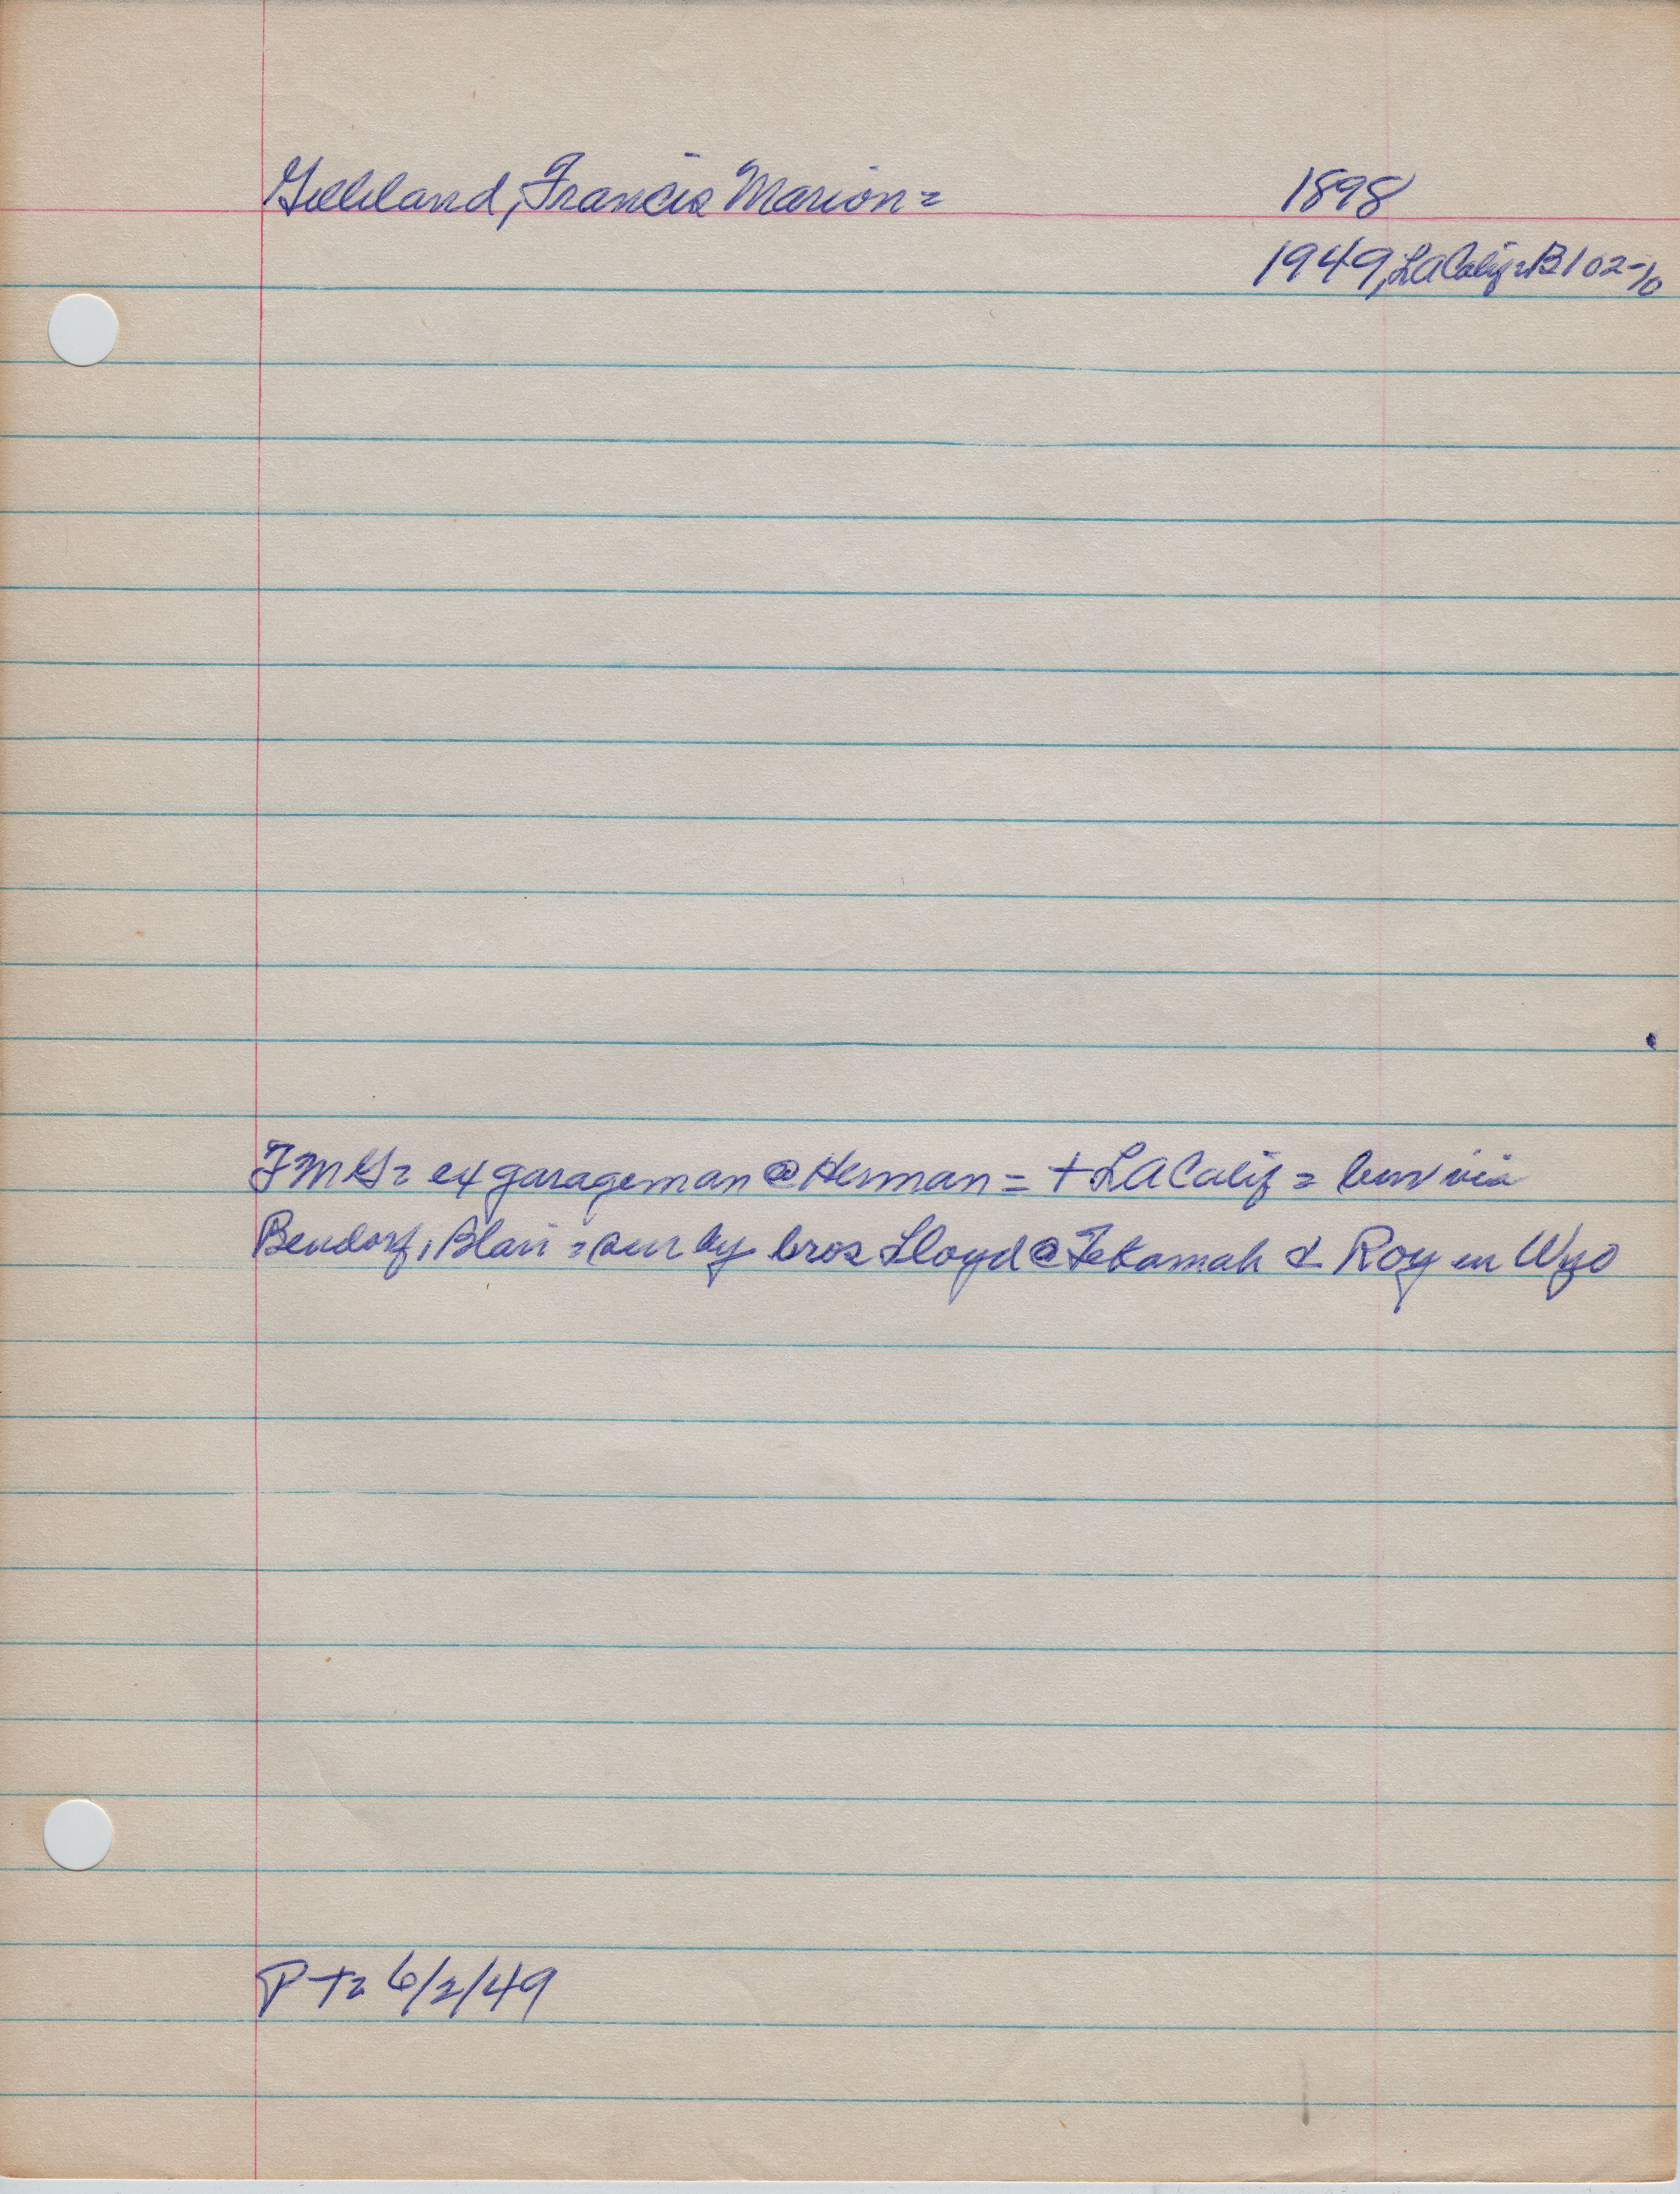 Gilleland, Francis Marion =
1898
1949, LA Calif = B102-10
FMG = ex garageman @ Herman = + LA Calif = bur via
Bendorf, Blair = sur by bros Lloyd @ Tekamah & Roy in Wyo
P T = 6/2/49